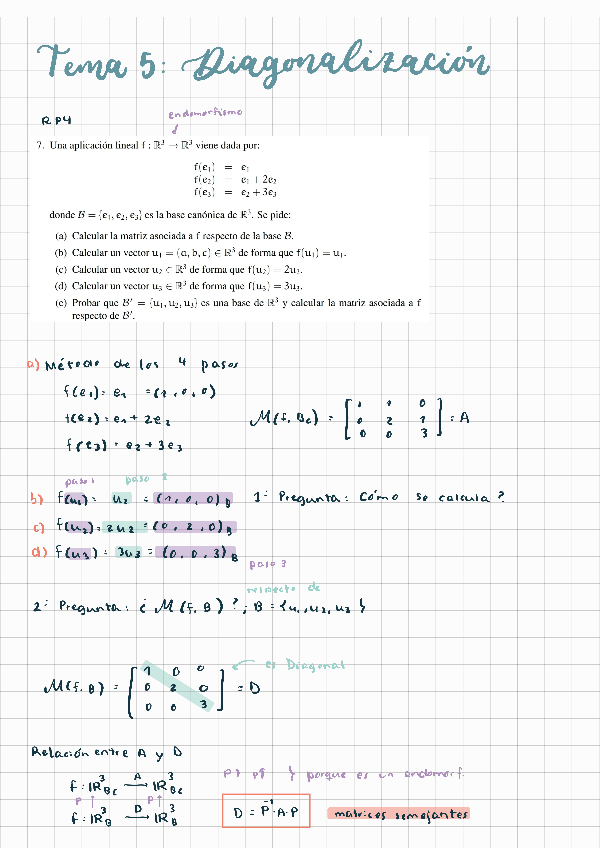 Tema 5: Diagonalización
RP4
endomorfismo
7. Una aplicación lineal f : ℝ³ → ℝ³ viene dada por:
f(e₁) = e₁
f(e₂) = e₁ + 2e₂
f(e₃) = e₂ + 3e₃
donde B = {e₁, e₂, e₃} es la base canónica de ℝ³. Se pide:
(a) Calcular la matriz asociada a f respecto de la base B.
(b) Calcular un vector u₁ = (a, b, c) ∈ ℝ³ de forma que f(u₁) = u₁.
(c) Calcular un vector u₂ ∈ ℝ³ de forma que f(u₂) = 2u₂.
(d) Calcular un vector u₃ ∈ ℝ³ de forma que f(u₃) = 3u₃.
(e) Probar que B′ = {u₁, u₂, u₃} es una base de ℝ³ y calcular la matriz asociada a f
respecto de B′.
a) Método de los 4 pasos
f(e₁) = e₁ = (1, 0, 0)
f(e₂) = e₁ + 2e₂
f(e₃) = e₂ + 3e₃
M(f, Bc) = [ 1 1 0
0 2 1
0 0 3 ] = A
paso 1 paso 2
b) f(u₁) = u₂ = (1, 0, 0)B 1º Pregunta: Cómo se calcula?
c) f(u₂) = 2u₂ = (0, 2, 0)B
d) f(u₃) = 3u₃ = (0, 0, 3)B
paso 3
respecto de
2º Pregunta: ¿M(f, B)?; B = {u₁, u₂, u₃}
M(f, B) = [ 1 0 0
0 2 0
0 0 3 ] = D
es Diagonal
Relación entre A y D
f : ℝ³Bc —A→ ℝ³Bc
P↑ P↑ } porque es un endomorf.
P↑ P↑
f : ℝ³B —D→ ℝ³B
D = P⁻¹·A·P
matrices semejantes